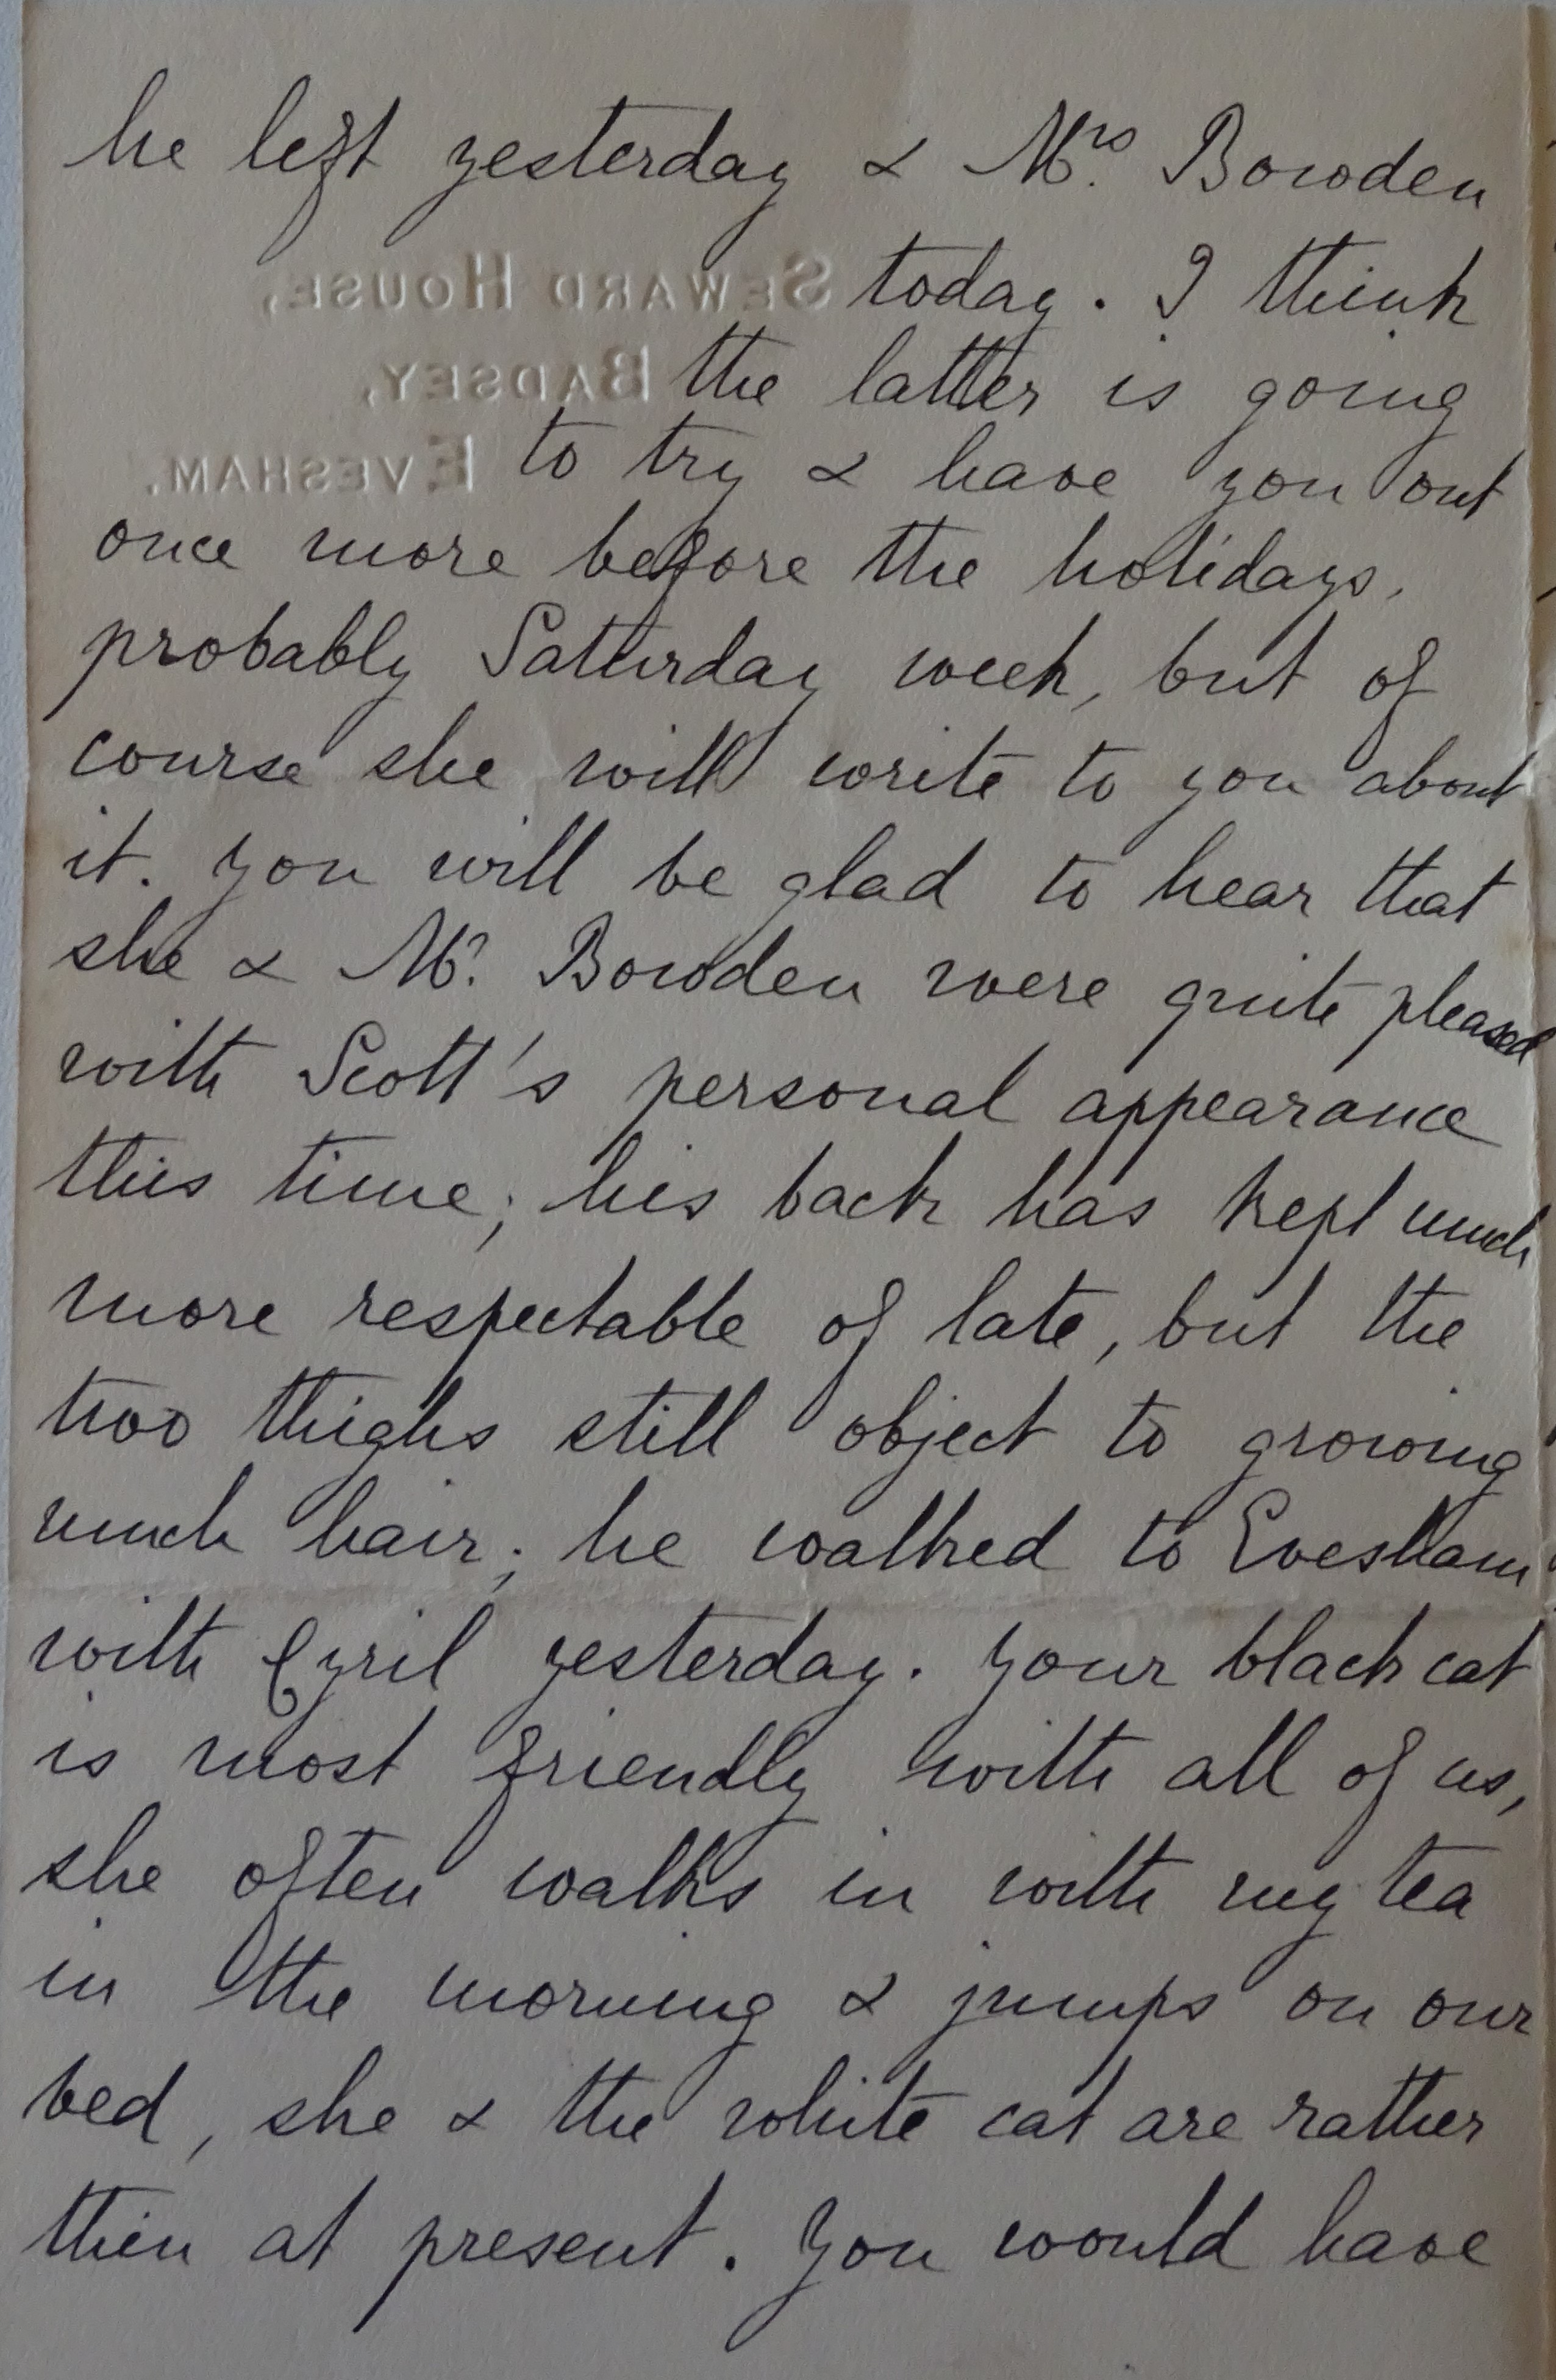 he left yesterday & Mrs. Bowden
SEWARD HOUSE, today. I think
BADSEY, the latter is going
EVESHAM. to try & have you out
once more before the holidays,
probably Saturday week, but of
course she will write to you about
it. You will be glad to hear that
she & Mr. Bowden were quite pleased
with Scott's personal appearance
this time; his back has kept much
more respectable of late, but the
two thighs still object to growing
much hair; he walked to Evesham
with Cyril yesterday. Your black cat
is most friendly with all of us,
she often walks in with my tea
in the morning & jumps on our
bed, she & the white cat are rather
thin at present. You would have